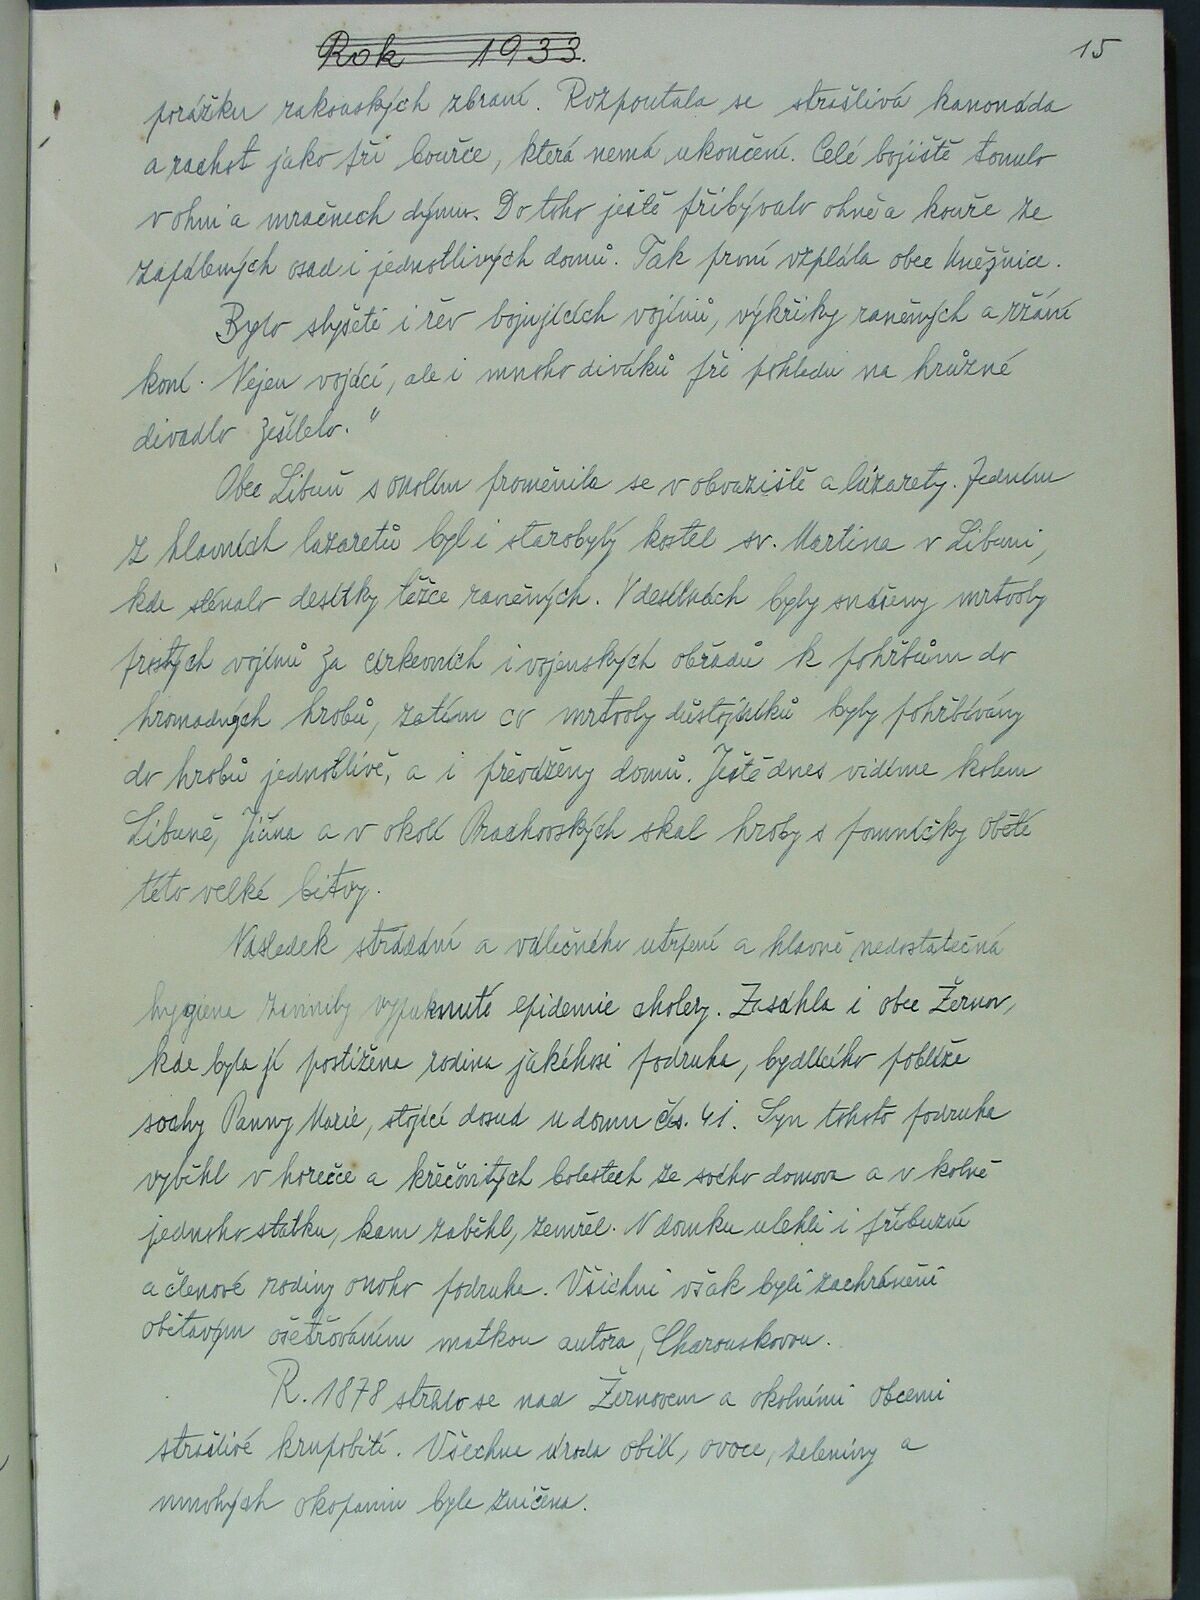 Rok 1933.
15
porážku rakouských zbraní. Rozpoutala se strašlivá kanonáda
a rachot jako při bouřce, která nemá ukončení. Celé bojiště tonulo
v ohni a mračnech dýmu. Do toho ještě přibývalo ohně a kouře ze
zapálených osad i jednotlivých domů. Tak první vzplála obec Kněžnice.
Bylo slyšeti i řev bojujících vojínů, výkřiky raněných a ržání
koní. Nejen vojáci, ale i mnoho diváků při pohledu na hrůzné
divadlo zešílelo."
Obec Libuň s okolím proměnila se v obvaziště a lazarety. Jedním
z hlavních lazaretů byl i starobylý kostel sv. Martina v Libuni,
kde sténalo desítky těžce raněných. V desítkách byly snášeny mrtvoly
prostých vojínů za církevních i vojenských obřadů k pohřbům do
hromadných hrobů, zatím co mrtvoly důstojníků byly pohřbívány
do hrobů jednotlivě, a i převáženy domů. Ještě dnes vidíme kolem
Libuně, Jičína a v okolí Prachovských skal hroby s pomníčky obětí
této velké bitvy.
Následek strádání a válečného utrpení a hlavně nedostatečná
hygiena zavinily vypuknutí epidemie cholery. Zasáhla i obec Žernov,
kde byla jí postižena rodina jakéhosi podruha, bydlícího poblíže
sochy Panny Marie, stojící dosud u domu čís. 41. Syn tohoto podruha
vyběhl v horečce a křečovitých bolestech ze svého domova a v kolně
jednoho statku, kam zaběhl, zemřel. V domku ulehli i příbuzní
a členové rodiny onoho podruha. Všichni však byli zachráněni
obětavým ošetřováním matkou autora, Charouskovou.
R. 1878 strhlo se nad Žernovem a okolními obcemi
strašlivé krupobití. Všechna úroda obilí, ovoce, zeleniny a
mnohých okopanin byla zničena.